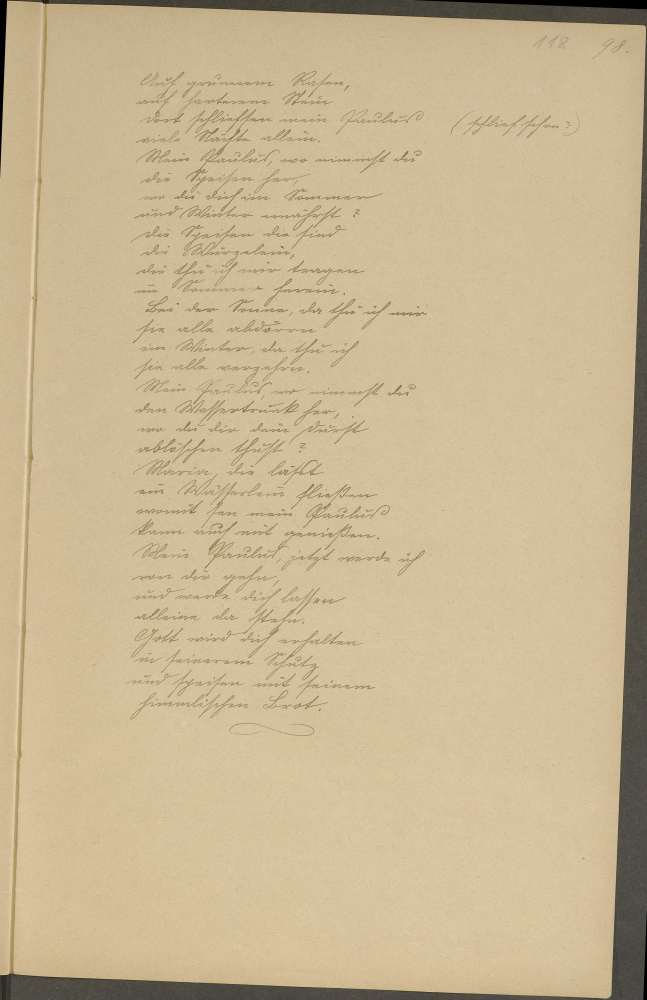 118 98.
Auf grünerem Rasen,
auf harterem Stein
dort schliefsen mein Paulus (schlief schon?)
viele Nächte allein.
Mein Paulus, wo nimmst du
die Speisen her,
wo du dich im Sommer
und Winter ernährst?
Die Speisen die sind
die Würzelein,
die thu ich mir tragen
im Sommer herein.
Bei der Sonne, da thu ich mir
sie alle abdörren
im Winter, da thu ich
sie alle verzehrn.
Mein Paulus, wo nimmst du
den Wassertrunk her,
wo du dir dein Durst
ablöschen thust?
Maria, die lässt
ein Wässerlein fließen
womit mein Paulus
kann auch mit genießen.
Mein Paulus, jetzt werde ich
von dir gehn,
und werde dich lassen
alleine da stehn.
Gott wird dich erhalten
in seinerem Schutz
und speisen mit seinem
himmlischen Brot.